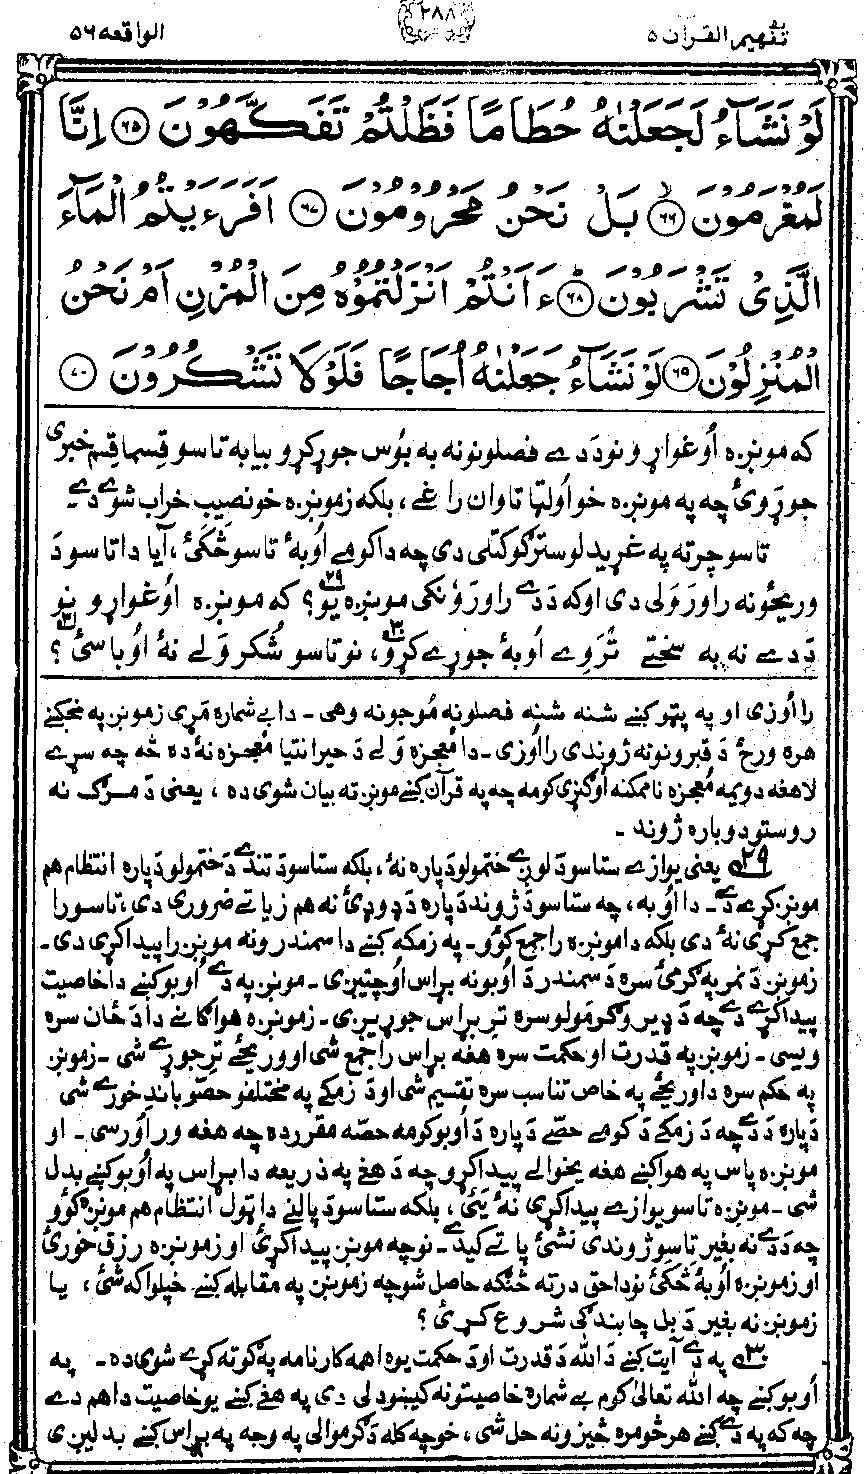 تفهیم القرآن ۵
۲۸۸
الواقعه ۵۶
لَوْ نَشَآءُ لَجَعَلْنٰهُ حُطَامًا فَظَلْتُمْ تَفَكَّهُوْنَ ﴿۶۵﴾ اِنَّا
لَمُغْرَمُوْنَ ﴿۶۶﴾ بَلْ نَحْنُ مَحْرُوْمُوْنَ ﴿۶۷﴾ اَفَرَءَيْتُمُ الْمَآءَ
الَّذِيْ تَشْرَبُوْنَ ﴿۶۸﴾ ءَاَنْتُمْ اَنْزَلْتُمُوْهُ مِنَ الْمُزْنِ اَمْ نَحْنُ
الْمُنْزِلُوْنَ ﴿۶۹﴾ لَوْ نَشَآءُ جَعَلْنٰهُ اُجَاجًا فَلَوْلَا تَشْكُرُوْنَ ﴿۷۰﴾
که مونږه اُوغواړو نو دَ دے فصلونو نه به بُوس جوړ کړو بیا به تاسو قِسما قِسم خبری
جوړوئ چه په مونږه خو اُولټا تاوان راغے، بلکه زمونږه خو نصیب خراب شوے دے۔
تاسو چرته په غور سترګو کتلی دی چه دا کومے اُوبۀ تاسو څکئ، آیا دا تاسو دَ
وریځو نه راوَرَولی دی او که دَ دے راوَرَوُنکی مونږه یُو؟ ۲۹ که مونږه اوُغواړو نو
دَ دے نه به سختے تُروے اُوبۀ جوړے کړو ۳۰، نو تاسو شُکر وَلے نۀ اوُباسئ ۳۱؟
رااُوزی او په پټو کښے شنه شنه فصلونه مُوجونه وهی ۔ دا بے شماره مَړی زمونږ په مخکښے
هره ورځ دَ قبرونو نه ژوندی رااُوزی ۔ دا مُعجزه وَلے دَ حیرانتیا مُعجزه نۀ ده څه چه سړے
لا هغه دویمه مُعجزه ناممکنه اُوګڼړی کومه چه په قرآن کښے مونږ ته بیان شوی ده، یعنی دَ مرګ نه
روستو دوباره ژوند ۔
۲۹ یعنی یوازے ستاسو دَ لوږے ختمولو دَپاره نۀ، بلکه ستاسو دَ تندے دَ ختمولو دَپاره انتظام هم
مونږ کړے دے ۔ دا اُوبه، چه ستاسو دَ ژوند دَپاره دَ ډوډئ نه هم زیاتے ضروری دی، تاسو را
جمع کړی نۀ دی بلکه دا مونږه راجمع کوُو ۔ په زمکه کښے دا سمندرونه مونږ راپیدا کړی دی ۔
زمونږ دَ نمر په ګرمئ سره دَ سمندر دَ اُوبو نه براس اُوچتیږی ۔ مونږ په دے اُوبو کښے دا خاصیت
پیدا کړے دے چه دَ ډیر و ګرمولو سره ترِ براس جوړیږی ۔ زمونږه هواګانے دا دَ ځان سره
ویسی ۔ زمونږ په قدرت او حکمت سره هغه براس راجمع شی او وریځے ترِ جوړے شی ۔ زمونږ
په حکم سره دا وریځے په خاص تناسب سره تقسیم شی او دَ زمکے په مختلفو حصّو باندِ خورے شی
دَپاره دَ دے چه دَ زمکے دَ کومے حصّے دَپاره دَ اُوبو کومه حصّه مقرر ده چه هغه وراُورسی ۔ او
مونږه پاس په هوا کښے هغه یخوالے پیدا کړو چه دَ هغے په ذریعه دا براس په اُوبو کښے بدل
شی ۔ مونږه تاسو یوازے پیدا کړی نۀ یَئ، بلکه ستاسو دَ پالنے دا ټول انتظام هم مونږه کوُو
چه دَ دے نه بغیر تاسو ژوندی نشئ پاتے کیدے ۔ نو چه مونږ پیدا کړئ او زمونږه رزق خورئ
او زمونږه اُوبۀ څکئ نو دا حق درته څنګه حاصل شو چه زمونږ په مقابله کښے خپلواکه شئ، یا
زمونږ نه بغیر دَ بل چا بندګی شروع کړئ؟
۳۰ په دے آیت کښے دَ الله دَ قدرت او دَ حکمت یوه اهمه کارنامه په ګوته کړے شوی ده ۔ په
اُوبو کښے چه الله تعالیٰ کوم بے شماره خاصیتونه کیښودلی دی په هغے کښے یو خاصیت دا هم دے
چه که په دے کښے هر څومره څیزونه حل شی، خو چه کله دَ ګرموالی په وجه په براس کښے بدلیږی